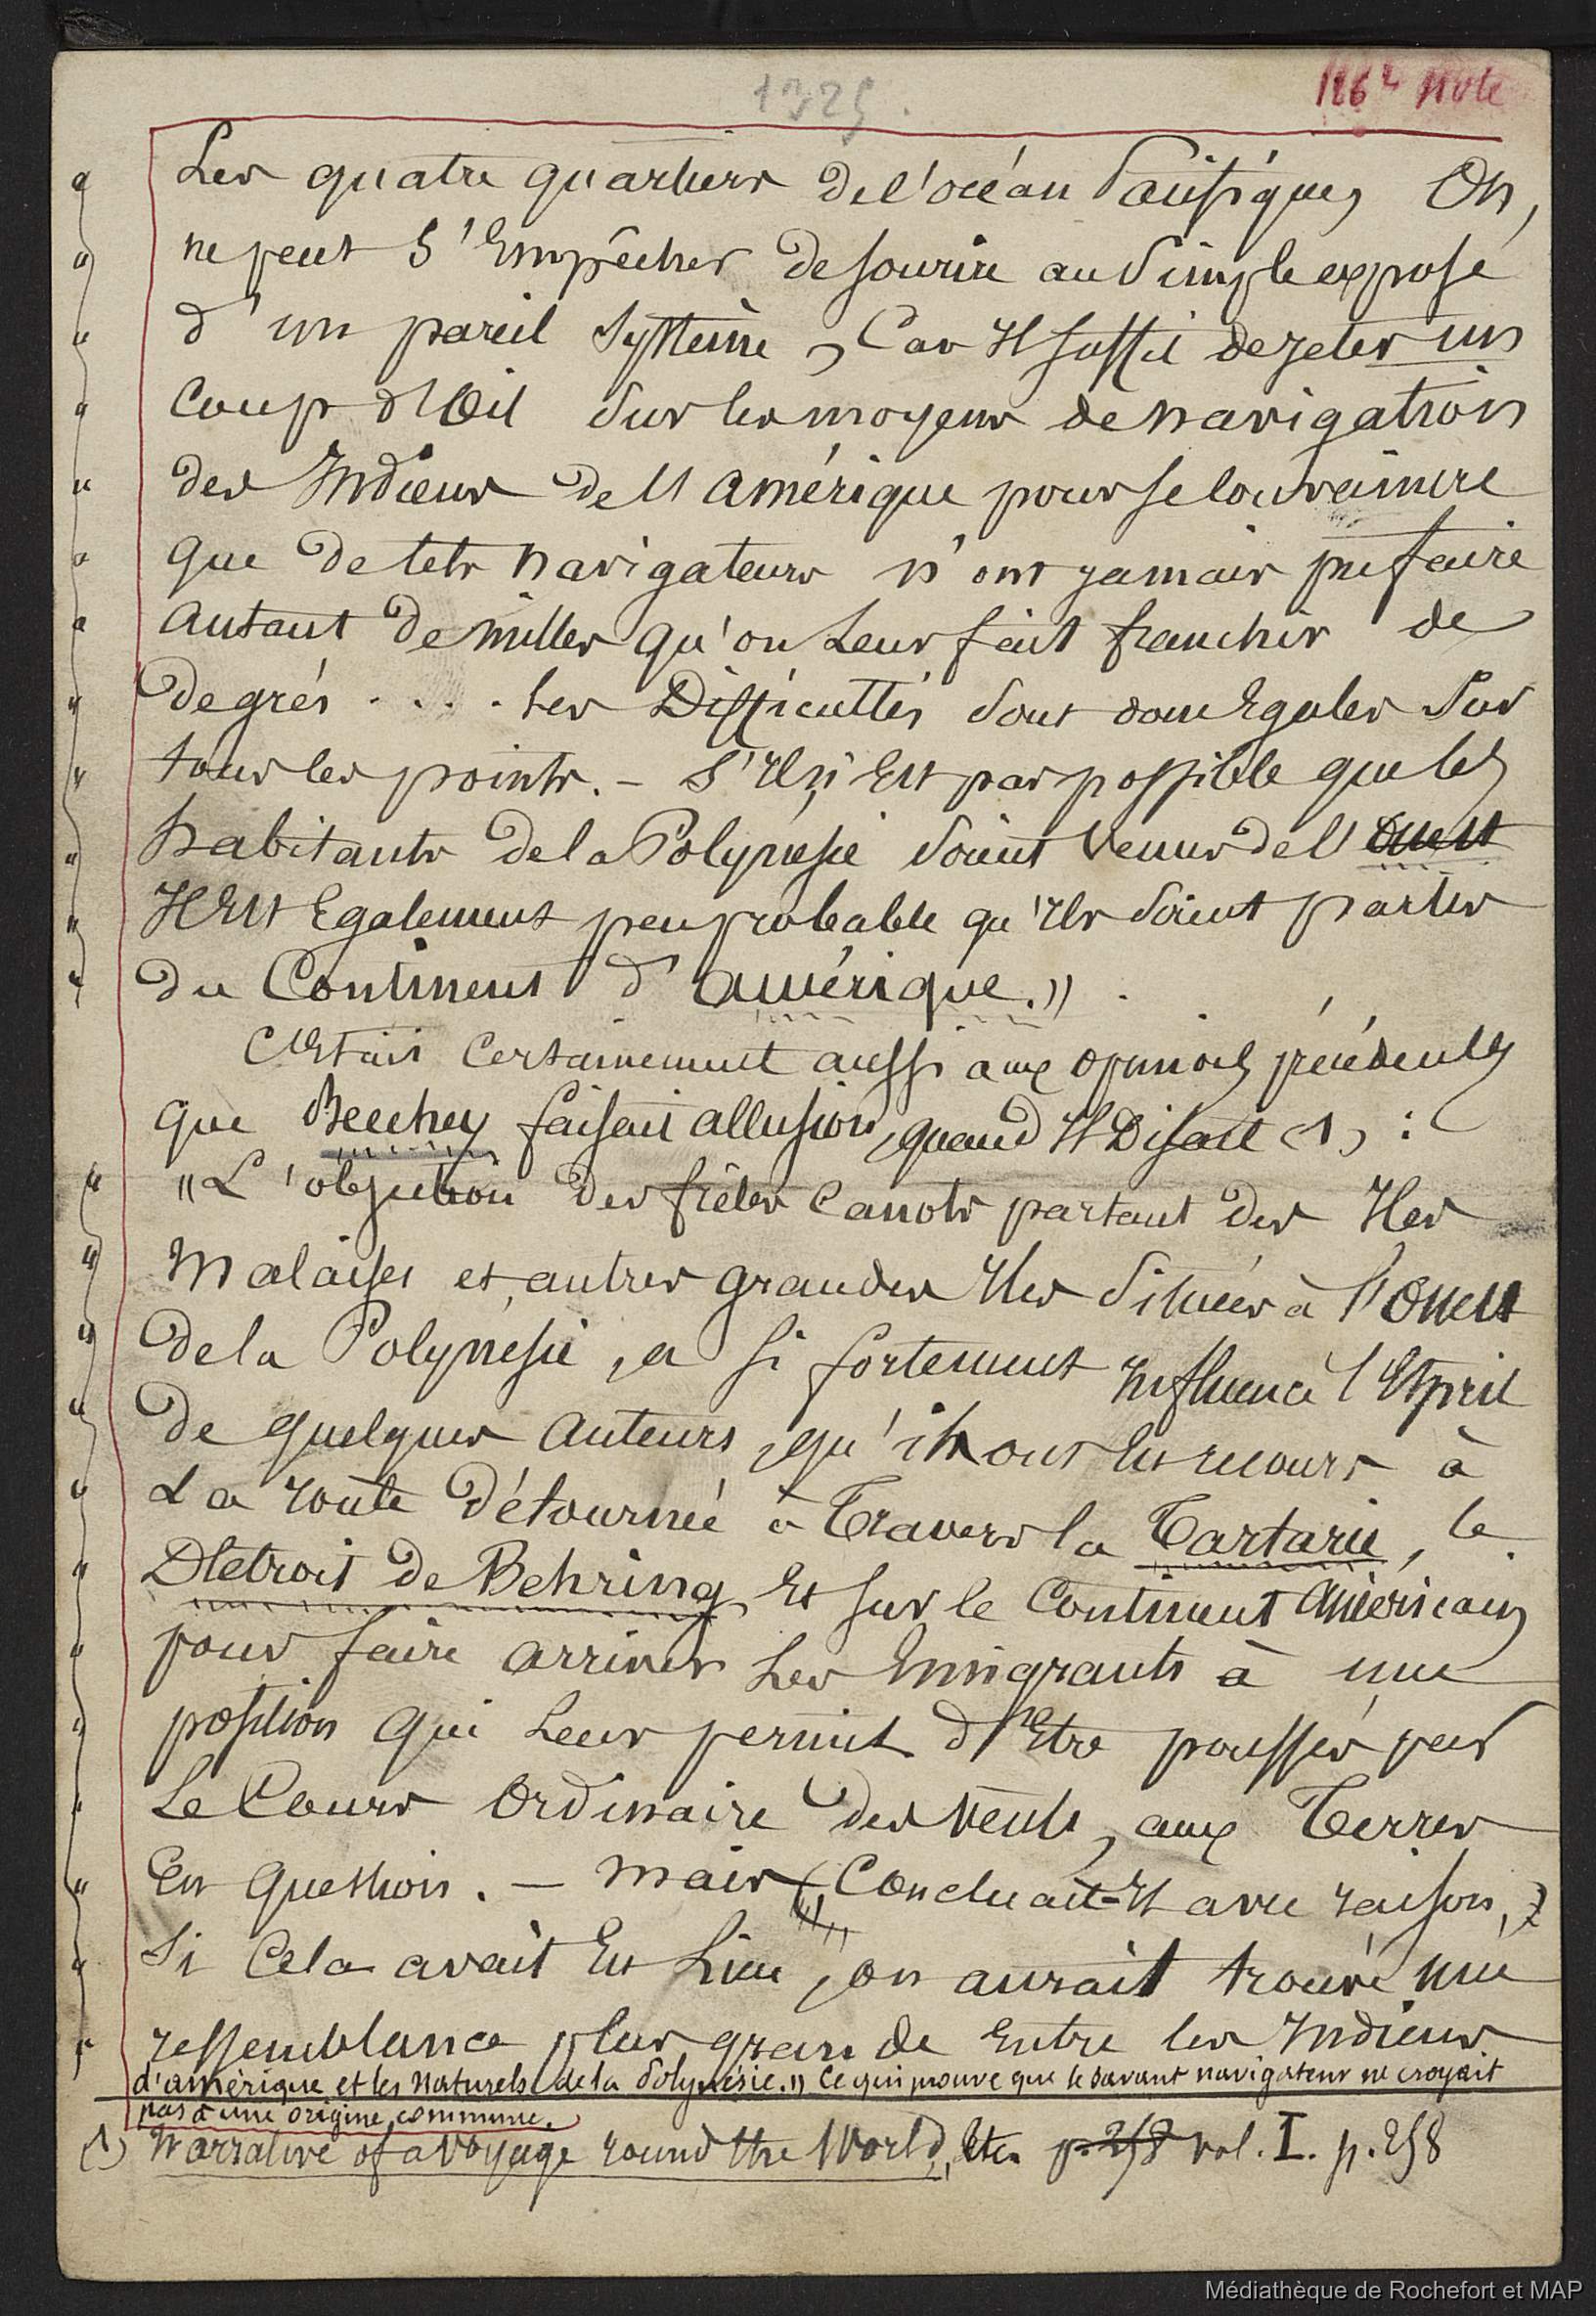 1325.
126e Note
Les quatre quartiers de l'océan Pacifique, On,
ne peut s'Empêcher de sourire au simple exposé
d'un pareil système, Car Il suffit de jeter un
Coup d'Oeil sur les moyens de navigation
des Indiens de l'Amérique pour se Convaincre
que de tels navigateurs n'ont jamais pu faire
autant de milles qu'on Leur fait franchir de
degrés.... Les Difficultés sont donc Egales Sur
tous les points. – S'Il n'Est pas possible que les
habitants de la Polynésie soient Venus de l'Ouest
Il Est Egalement peu probable qu'Ils soient partis
du Continent d'Amérique."
C'Etait Certainement aussi aux opinions précédentes
que Beechey faisait allusion, quand Il Disait (1) :
"L'objection des frêles Canots partant des Iles
Malaises et, autres grandes Iles situées à l'Ouest
de la Polynésie, a si fortement Influencé l'Esprit
de quelques auteurs, qu'ils ont Eu recours à
La route détournée à Travers la Tartarie, le
Détroit de Behring, Et sur le Continent Américain
pour faire arriver Les Emigrants à une
position qui Leur permit d'Etre poussés par
Le Cours Ordinaire des Vents, aux Terres
En Question. – Mais (Concluait-Il avec raison,)
Si Cela avait Eu Lieu, on aurait trouvé une
ressemblance plus grande Entre les Indiens
d'amérique et les Naturels de la Polynésie." Ce qui prouve que le savant navigateur ne croyait
pas à une origine commune.
(1) Narrative of a Voyage round the World, Etc. p. 258 vol. I. p. 258
Médiathèque de Rochefort et MAP